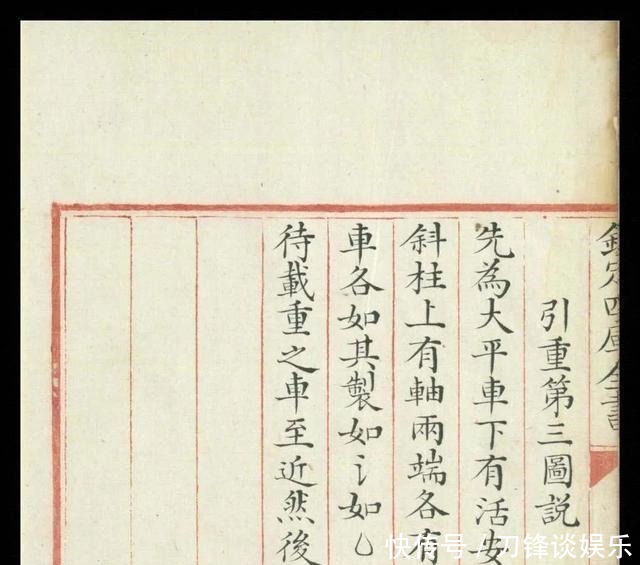 欽定四庫全書
引重第三圖説
先為大平車下有活安
斜柱上有軸兩端各有
車各如其製如讠如乚
待載重之車至近然後
快传号 / 刀锋谈娱乐